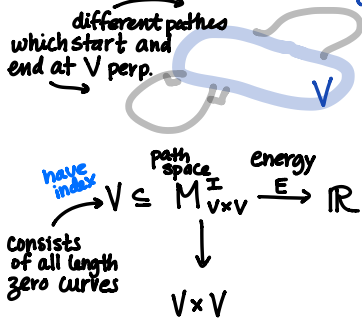 different pathes
which start and
end at V perp.
V
have
index
path
space
energy
V ⊆ M^I_{V×V} E→ ℝ
consists
of all length
zero curves
V × V